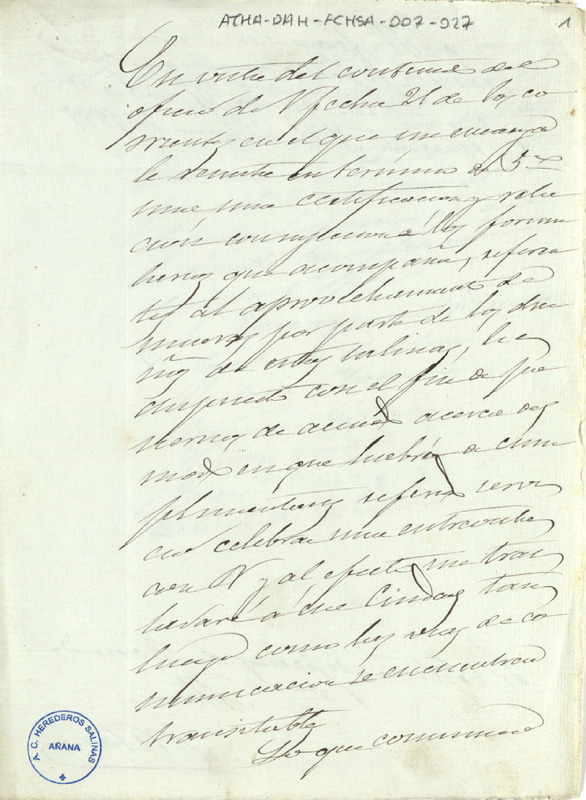 ATHA-DAH-FCHSA-007-027
1
En vista del contenido del
oficio de V fecha 21 de los co
rrientes en el que me encarga
le remita en termino de 5 dias
una certificacion y rela
cion con sujecion á los formu
larios que acompaña, referen
tes al aprovechamiento de
mueras por parte de los due
ños de estas salinas, he
dispuesto con el fin de po
nernos de acuerdo acerca del
modo en que habrá de cum
plimentarse referido servi
cio celebrar una entrevista
con V y al efecto me tras
ladaré á esa Ciudad tan
luego como las vias de co
municacion se encuentren
transitables
Lo que comunico
A.C. HEREDEROS SALINAS
AÑANA